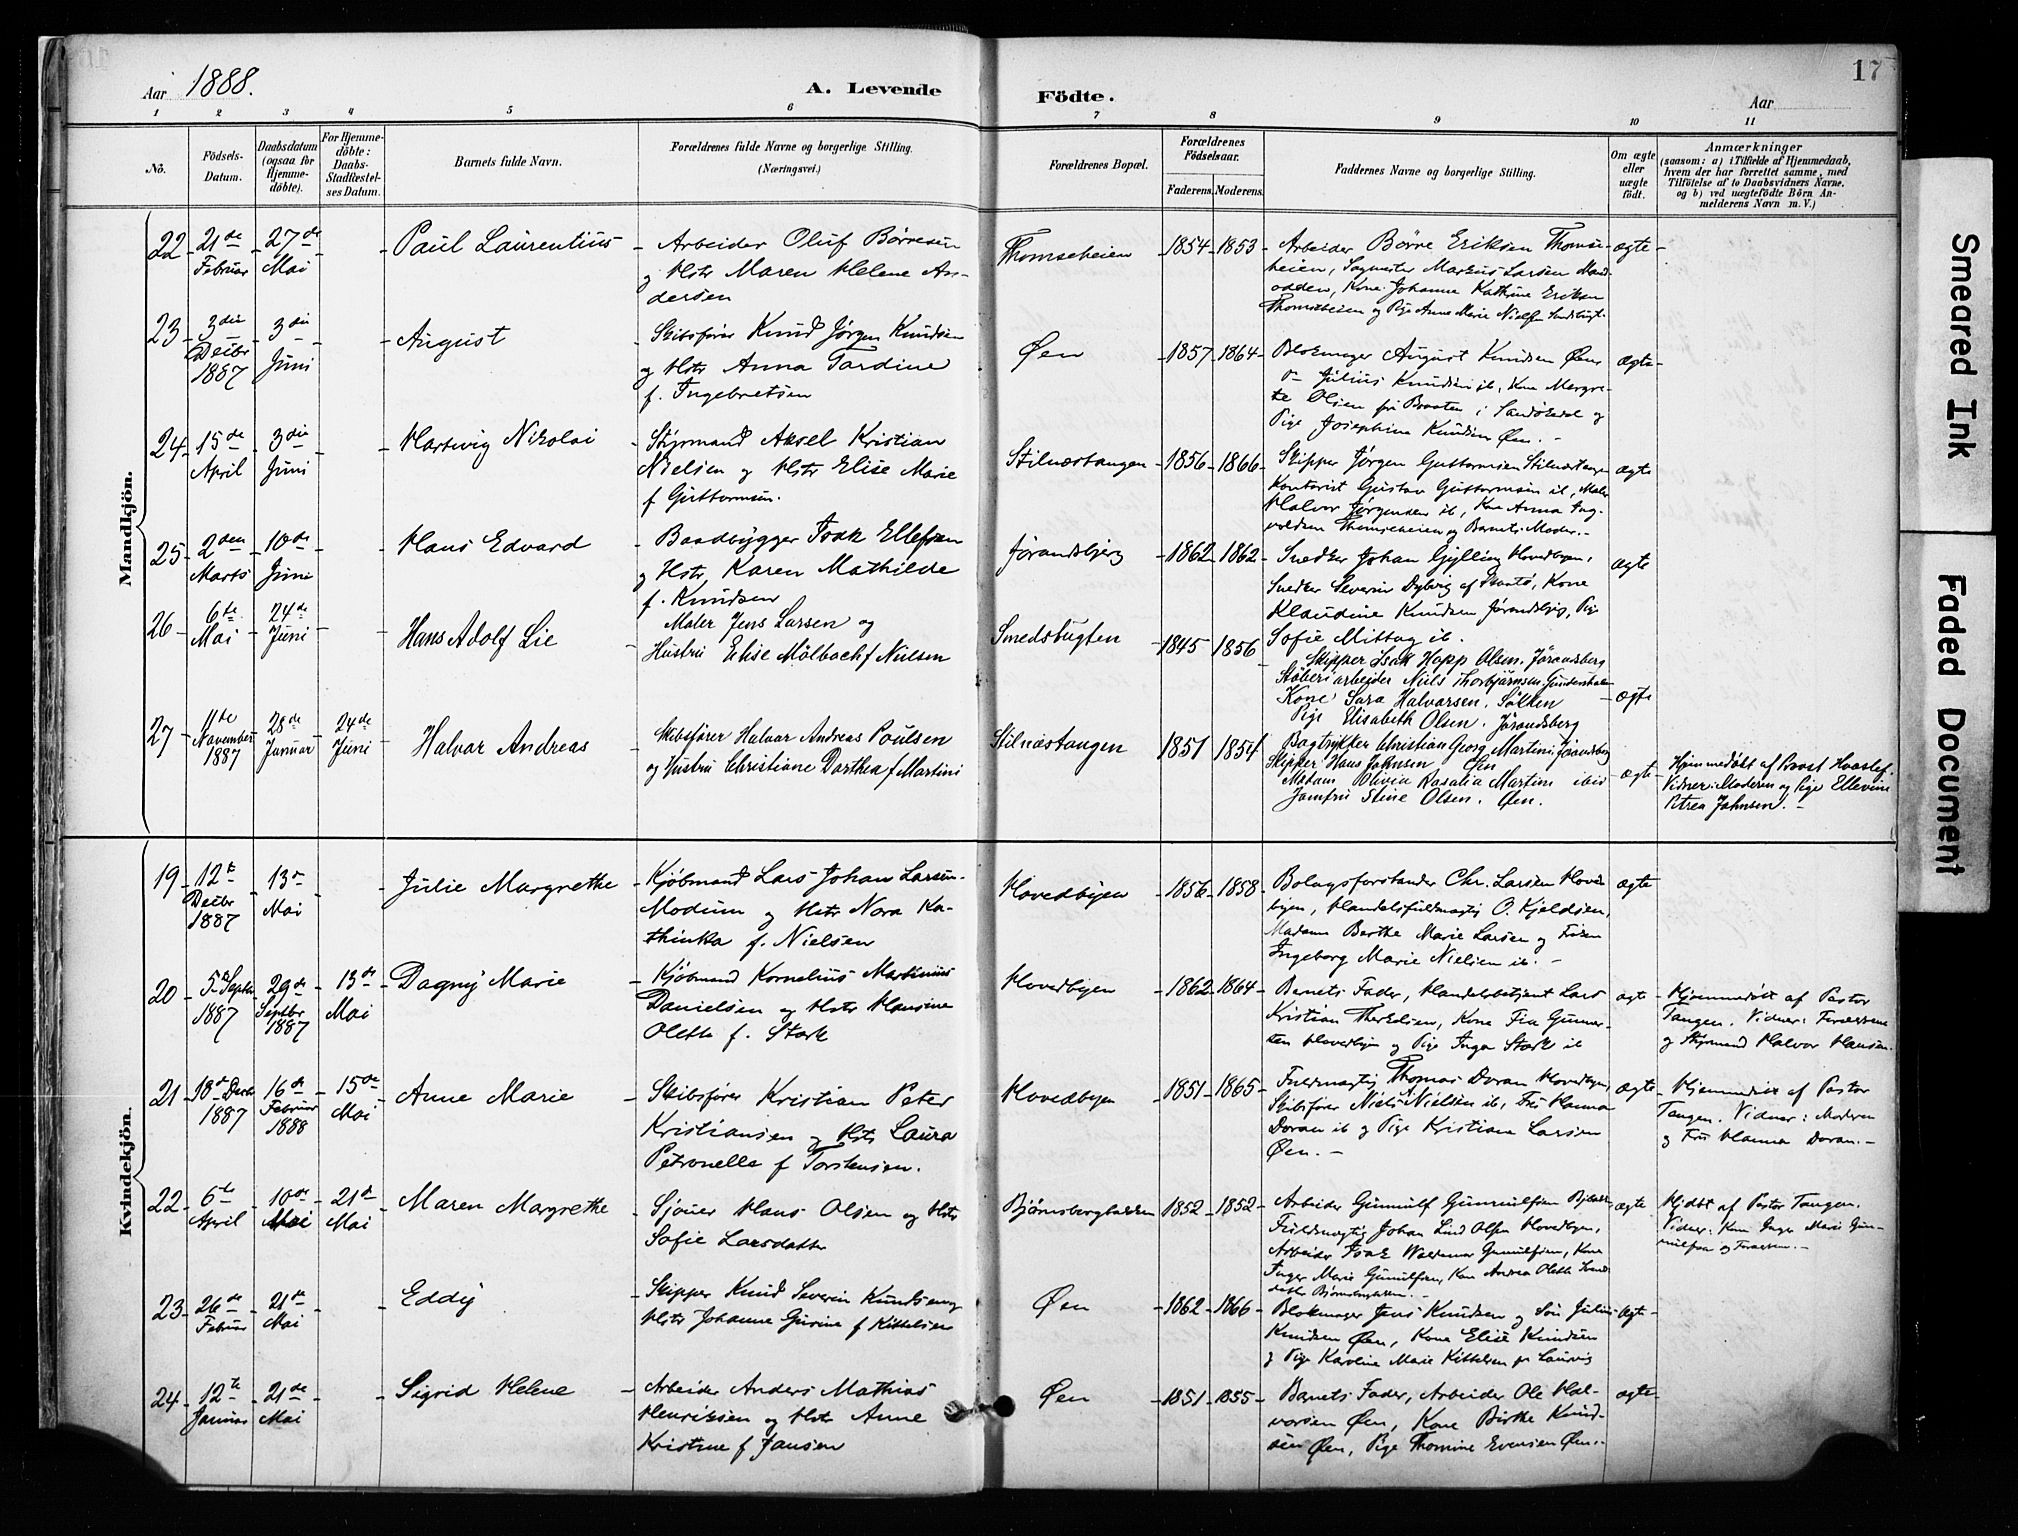 Aar 1888. A. Levende Födte. Aar 17
1 2 3 4 5 6 7 8 9 10 11
No. Födsels-Datum. Daabsdatum (ogsaa for Hjemme-döbte). For Hjemme-döbte: Daabs-Stadfæstel-ses Datum. Barnets fulde Navn. Forældrenes fulde Navne og borgerlige Stilling. (Næringsvei.) Forældrenes Bopæl. Forældrenes Födselsaar. Faderens. Moderens. Faddernes Navne og borgerlige Stilling. Om ægte eller uægte födt. Anmærkninger (saasom: a) i Tilfælde af Hjemmedaab, hvem der har forrettet samme, med Tilföielse af to Daabsvidners Navne. og b) ved uægtefödte Börn An-melderens Navn m. V.)
Mandkjön.
22 21de Februar 27de Mai Paul Laurentius Arbeider Oluf Börresen
og Hstr Maren Helene An-
dersen
Thomseheien 1854 1853 Arbeider Börre Eriksen Thomse-
heien, Sagmester Markus Larsen
odden, Kone Johanne Kathrine Eriksen
Thomseheien og Pige Anne Marie Nielsen
ægte
23 3die Decbr 1887 3die Juni August Skibsfører Knud Jörgen Knudsen
og Hstr Anna Tardine
f. Ingebretsen
Øen 1857 1864 Blokmager August Knudsen Øen
Julius Knudsen ib, Kone Margre-
te Olsen fra Braaten i Sandökedal og
Pige Josephine Knudsen Øen.
ægte
24 15de April 3die Juni Hartvig Nikolai Styrmand Aksel Kristian
Nielsen og Hstr Elise Marie
f Guttormsen.
Stilnæstangen 1856 1866 Skipper Jörgen Guttormsen Stilnæstangen
Kontorist Gustav Guttormsen ib, Maler
Halvor Jörgensen ib, Kone Anna Ing-
voldsen Thomseheien og Barnets Moder.
ægte
25 2den Marts 10de Juni Hans Edvard Baadbygger Isak Ellefsen
og Hstr Karen Mathilde
f. Knudsen
Jörandsbjerg 1862 1862 Snedker Johan Gylling Hovedbyen,
Snedker Severin Dybvig af Skaatö, Kone
Klaudine Knudsen Jörandsbjerg, Pige
Sofie Mittag ib.
ægte
26 6te Mai 24de Juni Hans Adolf Lie Maler Jens Larsen og
Hustru Elise Mölbach f Nielsen
Smedsbugten 1845 1856 Skipper Isak Hopp Olsen. Jörandsberg
Støberiarbeider Niels Thorbjørnsen. Gundersholmen
Kone Sara Halvorsen. Sølten
Pige Elisabeth Olsen. Jörandsberg
ægte
27 11te November 1887 28de Januar 24de Juni Halvar Andreas Skibsfører Halvar Andreas Poulsen
og Hustru Christiane Dorthea f Martini
Stilnæstangen 1851 1854 Bogtrykker Christian Georg Martini Jörandsberg
Skipper Hans Johnsen Øen
Madam Olivia Rosalia Martini ibid
Jomfru Stine Olsen. Øen.
ægte Hjemmedøbt af Provst Hvoslef.
Vidner: Moderen og Pige Ellevine
Petrea Johnsen.
Kvindekjön.
19 12te Decbr 1887 13de Mai Julie Margrethe Kjöbmand Lars Johan Larsen
Modum og Hstr Nora Ka-
thinka f. Nielsen
Hovedbyen 1856 1858 Bolagsforstander Chr. Larsen Hoved-
byen, Handelsfuldmægtig O. Kjeldsen,
Madam Berthe Marie Larsen og Frøken
Ingeborg Marie Nielsen ib.
ægte
20 5te Septbr 1887 29de Septbr 1887 13de Mai Dagny Marie Kjöbmand Kornelius Martinius
Danielsen og Hstr Hansine
Olette f. Stærk
Hovedbyen 1862 1864 Barnets Fader, Handelsbetjent Lars
Kristian Therkelsen, Kone Fia Gunner-
sen Hovedbyen og Pige Inga Stærk ib
ægte Hjemmedöbt af Pastor
Tangen. Vidner: Forældrene
og Styrmand Halvor Hansen.
21 18de Decbr 1887 16de Februar 1888 15de Mai Anne Marie Skibsfører Kristian Peter
Kristiansen og Hstr Laura
Petronelle f Torstensen.
Hovedbyen 1851 1865 Fuldmægtig Thomas Doran Hovedbyen,
Skibsfører Niels Nielsen ib, Fru Hanna
Doran ib og Pige Kristiane Larsen
Øen.
ægte Hjemmedöbt af Pastor
Tangen. Vidner: Moderen
og Fru Hanna Doran.
22 6te April 10de Mai 21de Mai Maren Margrethe Sjouer Hans Olsen og Hstr
Sofie Larsdatter
Bjørnsbergbakken 1852 1852 Arbeider Gunnulf Gunnulfsen
Fuldmægtig Johan Lind Olsen Hovedbyen,
Arbeider Isak Waldemar Gunnulfsen, Kone
Inger Marie Gunnulfsen, Kone Andrea Olette
ægte Hjdöbt af Pastor Tangen.
Vidner: Kone Inger Marie Gun-
nulfsen og Forældrene.
23 26de Februar 21de Mai Eddy Skipper Knud Severin Knudsen og
Hstr Johanne Gurine f Kittelsen
Øen 1862 1866 Blokmager Jens Knudsen og Søn Julius
Knudsen Øen, Kone Elise Knudsen
og Pige Karoline Marie Kittelsen fra Laurvig
ægte
24 12te Januar 21de Mai Sigrid Helene Arbeider Anders Mathias
Henriksen og Hstr Anne
Kristine f Jansen
Øen 1851 1855 Barnets Fader, Arbeider Ole Hal-
vorsen Øen, Kone Birthe Knud-
sen Øen, Pige Thomine Evensen Øen.
ægte
Smeared Ink
Faded Document